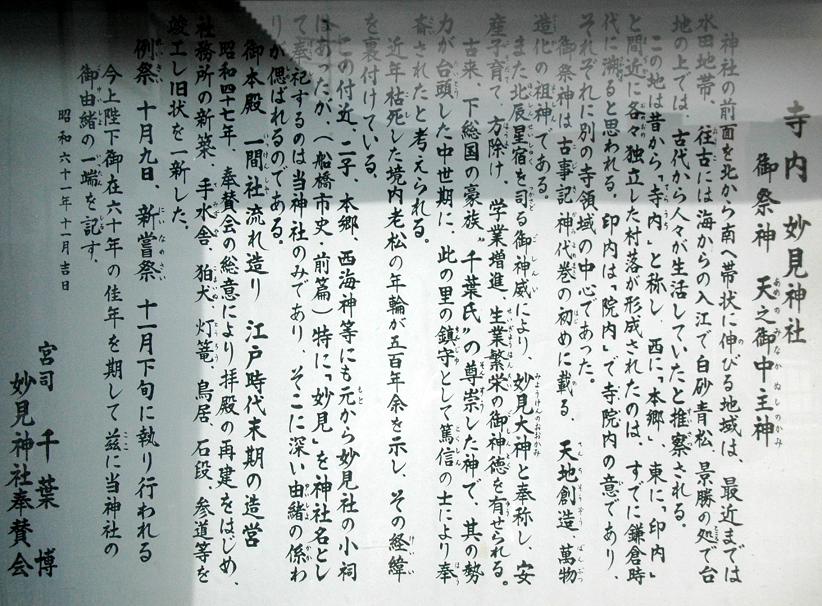 寺内 妙見神社
御祭神 天之御中主神
神社の前面を北から南へ帯状に伸びる地域は、最近までは
水田地帯、往古には海からの入江で白砂青松、景勝の処で台
地の上では、古代から人々が生活していたと推察される。
この地は昔から「寺内」と称し、西に「本郷」、東に「印内」
と間近に各々独立した村落が形成されたのは、すでに鎌倉時
代に溯ると思われる。印内は「院内」で寺院内の意であり、
それぞれに別の寺領域の中心であった。
御祭神は古事記神代巻の初めに載る、天地創造、萬物
造化の祖神である。
また北辰星宿を司る御神威により、妙見大神と奉称し、安
産子育て、方除け、学業増進、生業繁栄の御神徳を有せられる。
古来、下総国の豪族〝千葉氏〟の尊崇した神で、其の勢
力が台頭した中世期に、此の里の鎮守として篤信の士により奉
斎されたと考えられる。
近年枯死した境内老松の年輪が五百年余を示し、その経緯
を裏付けている。
この付近、二子、本郷、西海神等にも元から妙見社の小祠
はあったが、(船橋市史・前篇)特に「妙見」を神社名とし
て奉祀するのは当神社のみであり、そこに深い由緒の係わ
りが偲ばれるのである。
御本殿 一間社流れ造り 江戸時代末期の造営
昭和四十七年、奉賛会の総意により拝殿の再建をはじめ、
社務所の新築、手水舎、狛犬、灯篭、鳥居、石段、参道等を
竣工し旧状を一新した。
例祭 十月九日、新嘗祭 十一月下旬に執り行われる
今上陛下御在六十年の佳年を期して玆に当神社の
御由緒の一端を記す。
昭和六十一年十一月吉日
宮司 千葉 博
妙見神社奉賛会